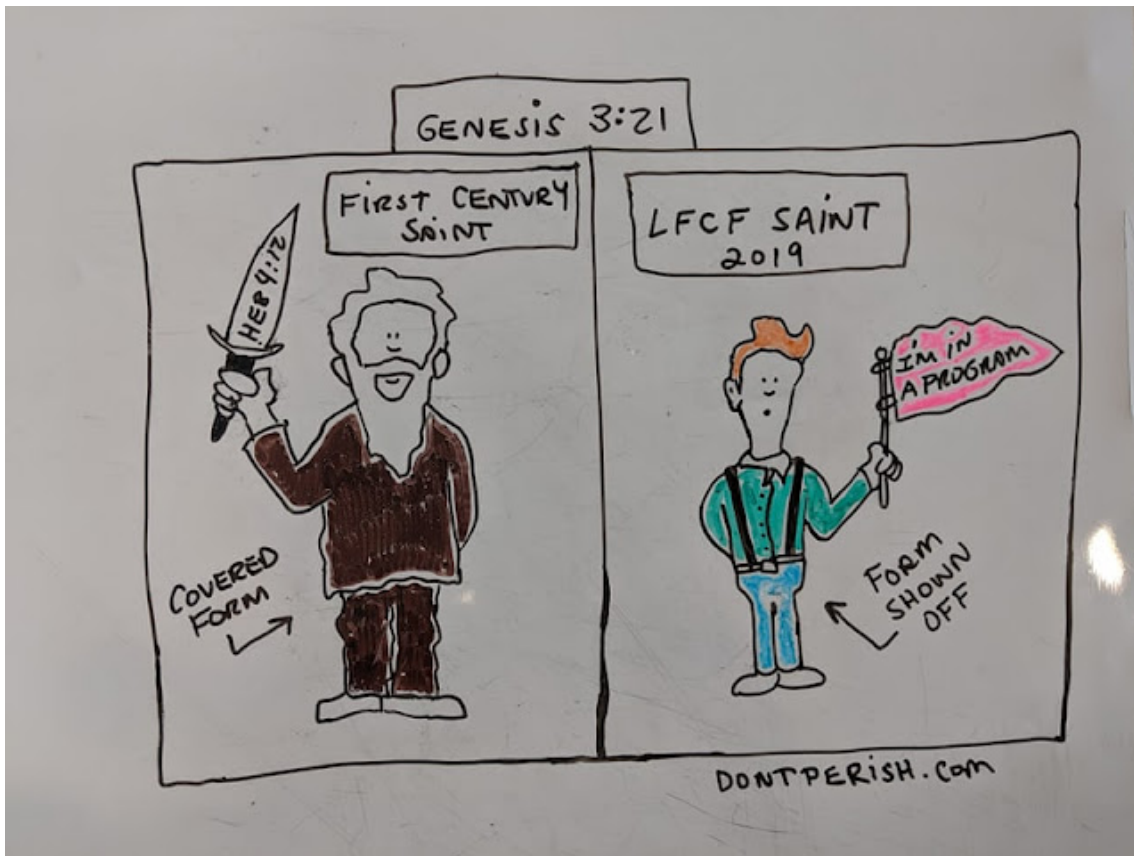 GENESIS 3:21
FIRST CENTURY
SAINT
HEB 4:12
COVERED
FORM
LFCF SAINT
2019
I'M IN
A PROGRAM
FORM
SHOWN
OFF
DONTPERISH.COM